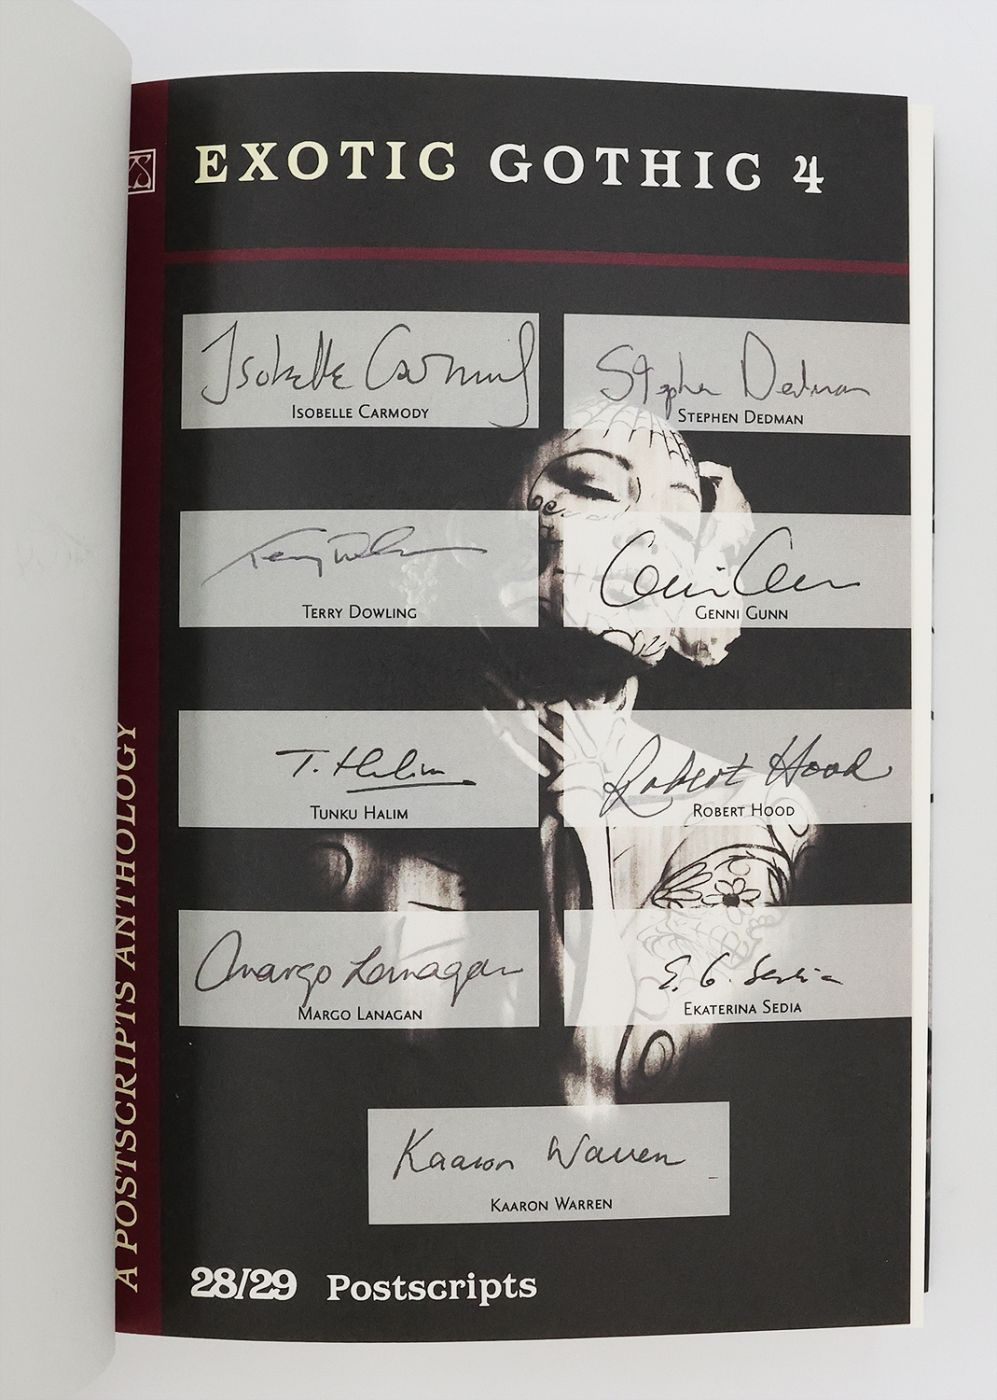 EXOTIC GOTHIC 4
Isobelle Carmody
ISOBELLE CARMODY
Stephen Dedman
STEPHEN DEDMAN
TERRY DOWLING
GENNI GUNN
T. Halim
TUNKU HALIM
Robert Hood
ROBERT HOOD
Margo Lanagan
MARGO LANAGAN
E. G. Sedia
EKATERINA SEDIA
Kaaron Warren
KAARON WARREN
28/29 Postscripts
A POSTSCRIPTS ANTHOLOGY